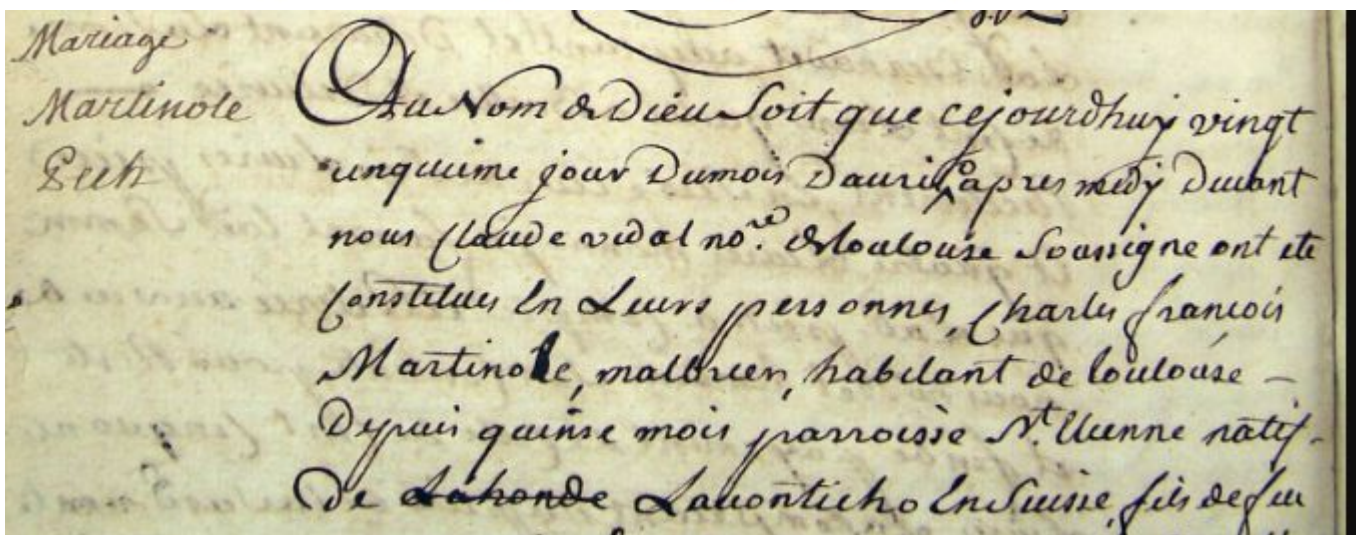 Mariage
Martinole
Pech
Au Nom de Dieu Soit que cejourdhuy vingt
cinquieme jour Dumois Dauril apres medy Devant
nous Claude vidal nore. de toulouse Soussigne ont ete
Constitues En Leurs personnes, Charles françois
Martinole, malbrier, habitant de toulouse –
Depuis quinse mois parroisse St. Etienne natif
de Lahonde Lauonticho En Suisse, fils de feu